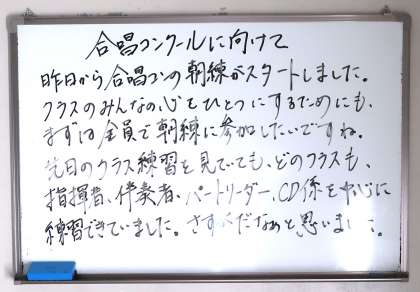 合唱コンクールに向けて
昨日から合唱コンの朝練がスタートしました。
クラスのみんなの心をひとつにするためにも、
まずは全員で朝練に参加したいですね。
先日のクラス練習を見ていても、どのクラスも、
指揮者、伴奏者、パートリーダー、CD係を中心に
練習できていました。さすがだなぁと思いました。